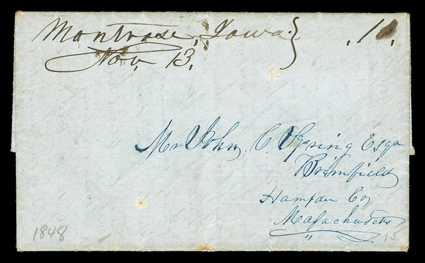 Montrose, Iowa. 10.
Nov. 13.
Mr John C. Spring Esqr
Brimfield
Hampden Co
Massachusetts
1848